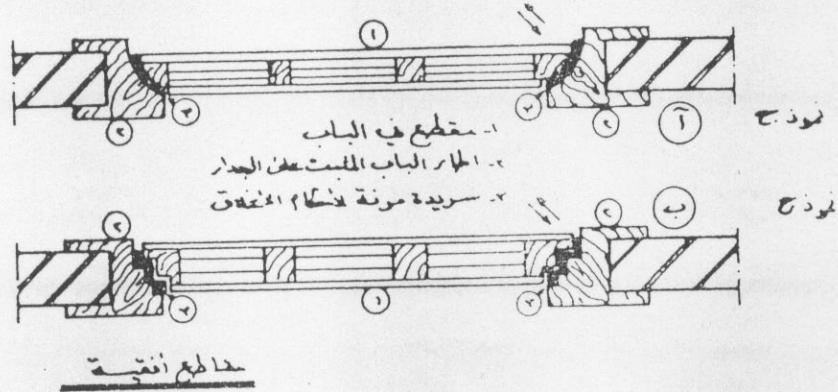 ١
٣
٣
٢
٢
آ
نموذج
١- مقطع في الباب
٢- اطار الباب المثبت على الجدار
٣- سريدة مرنة لاحكام الاغلاق
٢
٢
ب
نموذج
٣
١
٣
مقاطع أفقية